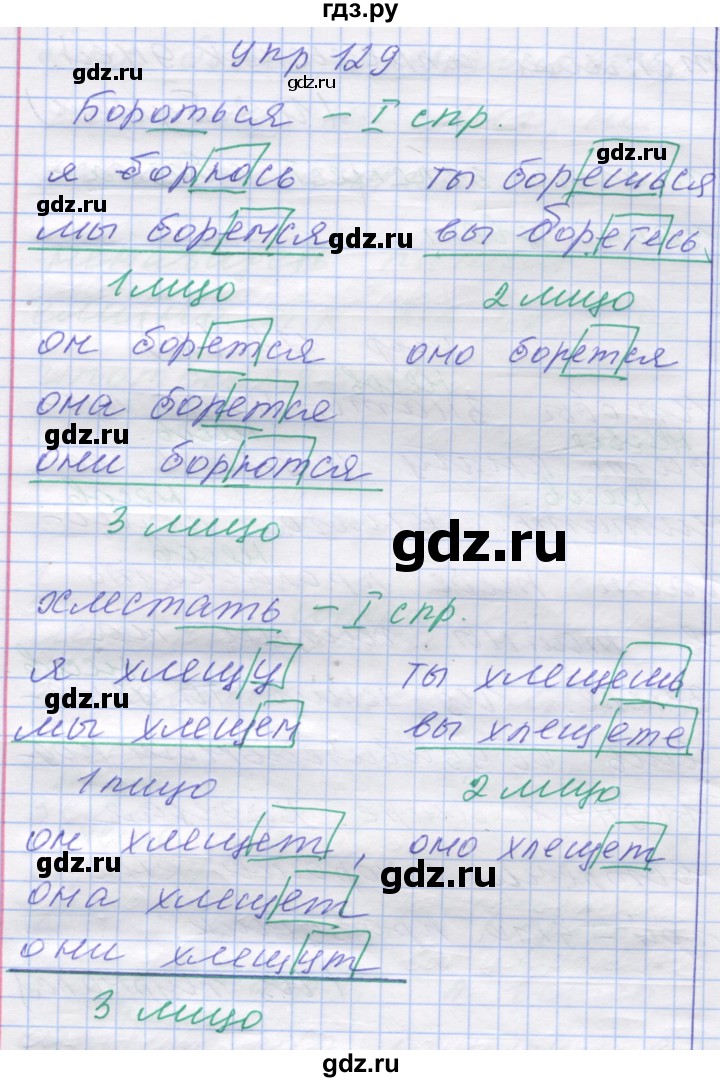 гдз.ру
упр 129
gdz.ru
gdz.ru
Бороться – I спр.
gdz.ru
я борюсь ты борешься
gdz.ru
мы боремся вы боретесь
gdz.ru
1 лицо 2 лицо
он борется оно борется
gdz.ru
она борется
gdz.ru
они борются
3 лицо
gdz.ru
хлестать – I спр.
gdz.ru
я хлещу ты хлещешь
gdz.ru
мы хлещем вы хлещете
1 лицо 2 лицо
он хлещет, оно хлещет
gdz.ru
gdz.ru
она хлещет
они хлещут
3 лицо
gdz.ru